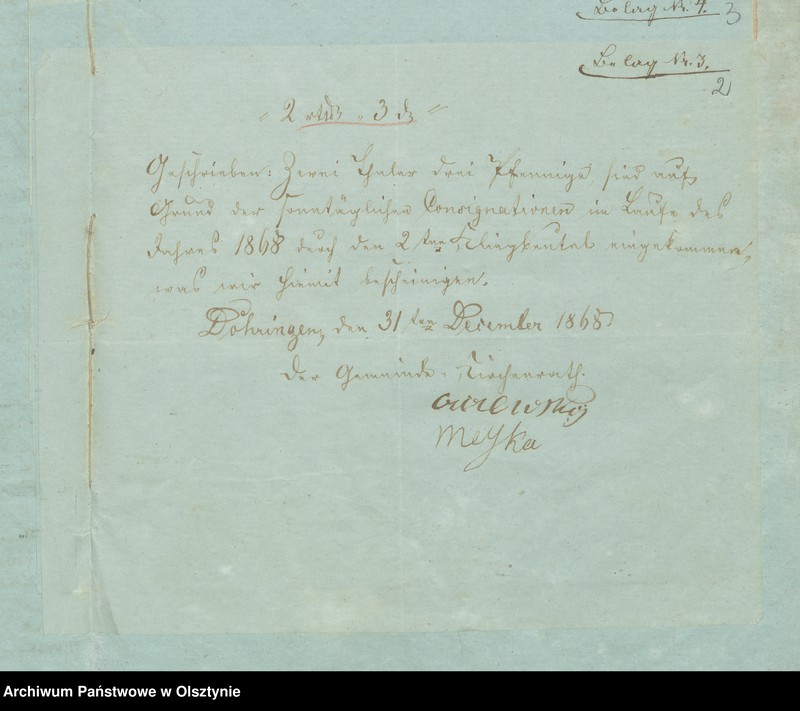 Belag Nr. 4.
3
Belag Nr. 3.
2
" 2 rtlr " 3 d "
Geschrieben: Zwei Thaler drei Pfennige, sind auf
Grund der sonntäglichen Consignationen im Laufe des
Jahres 1868 durch den 2ten Klingbeutel eingekommen,
was wir hiemit bescheinigen.
Döhringen, den 31ten December 1868
Der Gemeinde-Kirchenrath.
Meyka
Archiwum Państwowe w Olsztynie